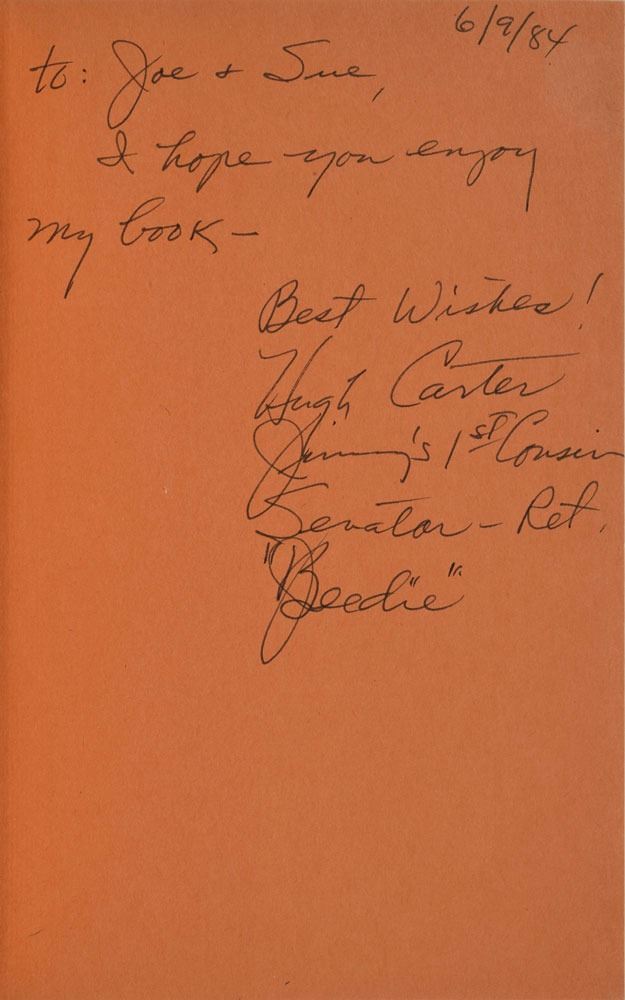 6/9/84
to: Joe + Sue,
I hope you enjoy
my book –
Best Wishes!
Hugh Carter
Jimmy's 1st Cousin
Senator – Ret.
"Beedie"